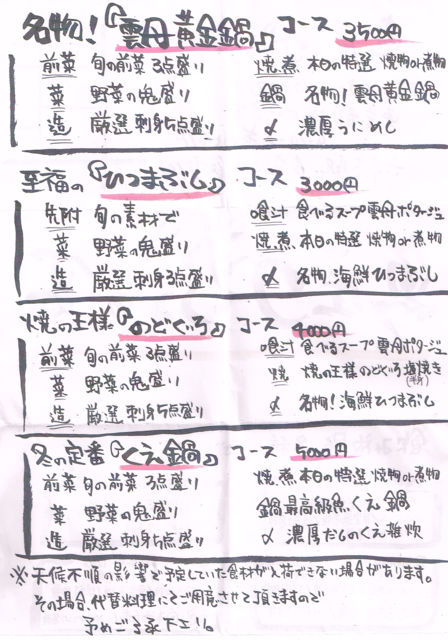 名物!『雲丹黄金鍋』 コース 3500円
前菜 旬の前菜3点盛り
菜 野菜の鬼盛り
造 厳選刺身5点盛り
焼煮 本日の特選 焼物or煮物
鍋 名物!雲丹黄金鍋
〆 濃厚うにめし
至福の『ひつまぶし』 コース 3000円
先附 旬の素材で
菜 野菜の鬼盛り
造 厳選刺身3点盛り
喰汁 食べるスープ雲丹ポタージュ
焼煮 本日の特選 焼物or煮物
〆 名物 海鮮ひつまぶし
焼の王様『のどぐろ』 コース 4000円
前菜 旬の前菜3点盛り
菜 野菜の鬼盛り
造 厳選刺身5点盛り
喰汁 食べるスープ雲丹ポタージュ
焼 焼の王様のどぐろ塩焼き
(半身)
〆 名物!海鮮ひつまぶし
冬の定番『くえ鍋』 コース 5000円
前菜 旬の前菜3点盛り
菜 野菜の鬼盛り
造 厳選刺身5点盛り
焼煮 本日の特選 焼物or煮物
鍋 最高級魚くえ鍋
〆 濃厚だしのくえ雑炊
※天候不順の影響で予定していた食材が入荷できない場合があります。
その場合、代替料理にてご用意させて頂きますので
予めご了承下さい。